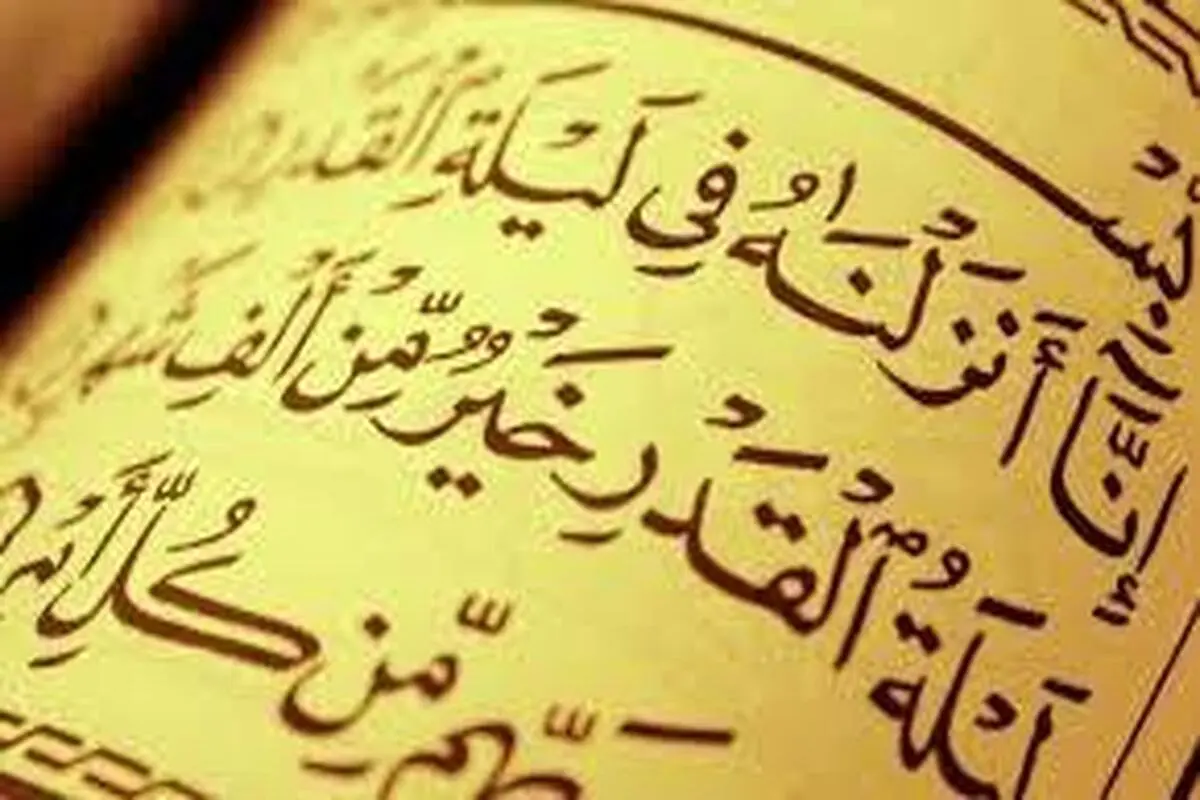 إِنَّآ أَنزَلْنَٰهُ فِى لَيْلَةِ ٱلْقَدْرِ
لَيْلَةُ ٱلْقَدْرِ خَيْرٌ مِّنْ أَلْفِ شَهْرٍ
مِّن كُلِّ أَمْرٍ